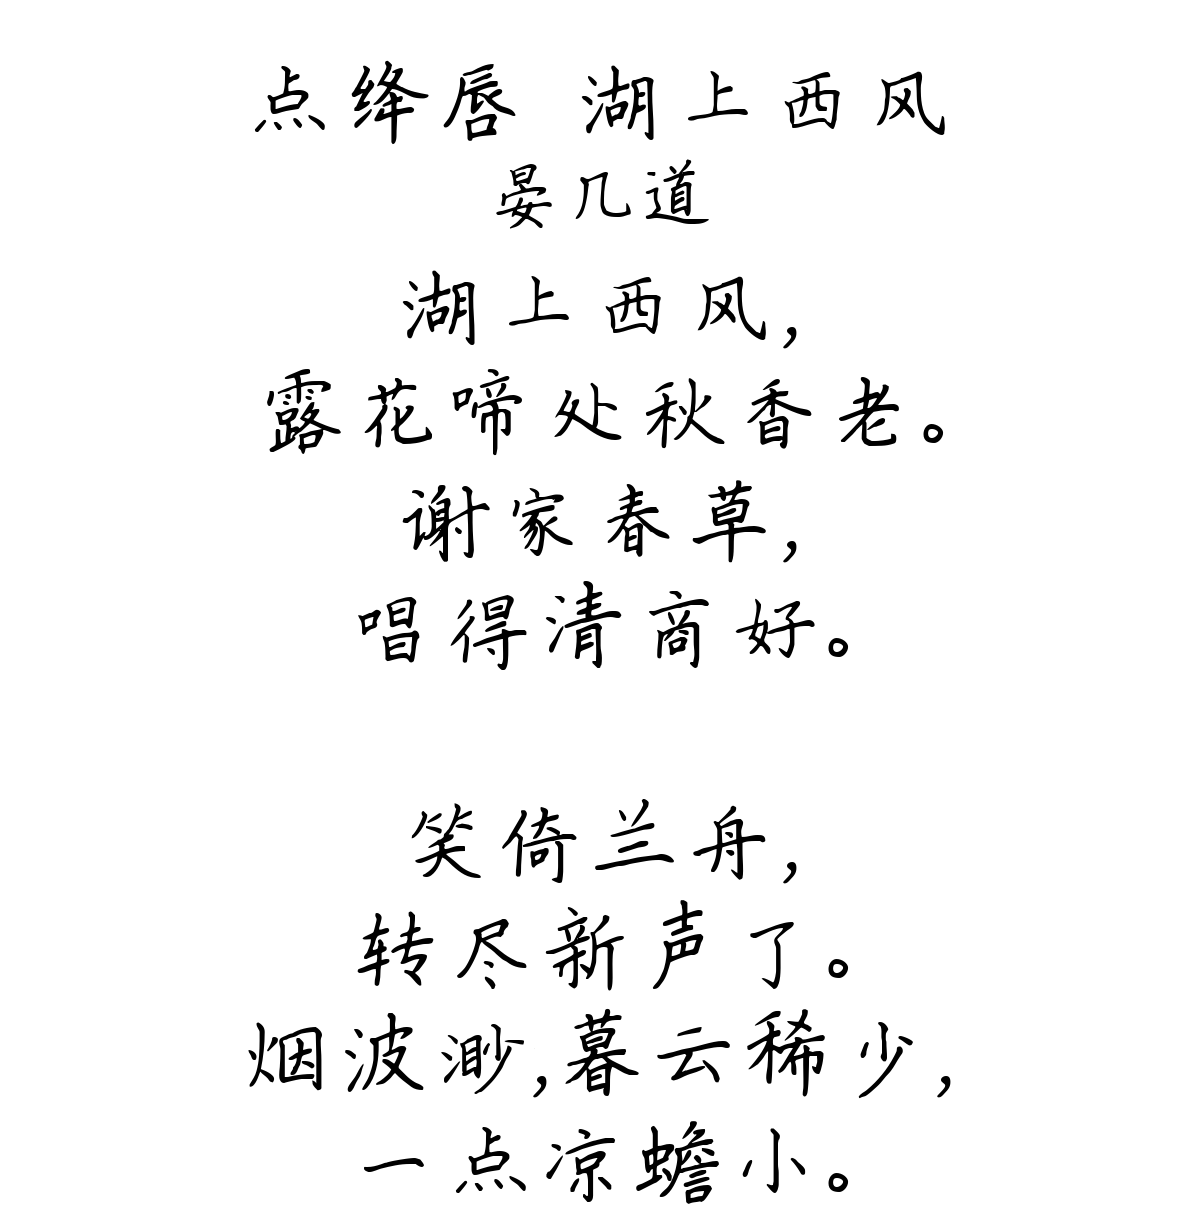 点绛唇 湖上西风
晏几道
湖上西风,
露花啼处秋香老。
谢家春草,
唱得清商好。
笑倚兰舟,
转尽新声了。
烟波渺,暮云稀少,
一点凉蟾小。